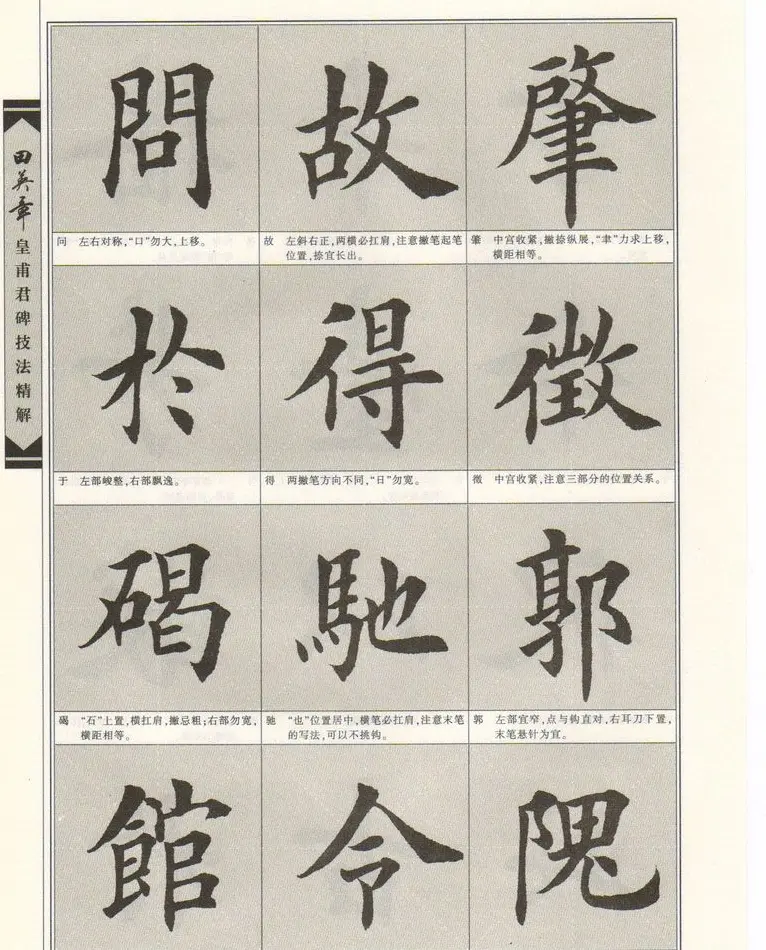 田英章
皇甫君碑技法精解
問 故 肇
问 左右对称,“口”勿大,上移。
故 左斜右正,两横必扛肩,注意撇笔起笔
位置,捺宜长出。
肇 中宫收紧,撇捺纵展,“聿”力求上移,
横距相等。
於 得 徵
于 左部峻整,右部飘逸。
得 两撇笔方向不同,“日”勿宽。
徵 中宫收紧,注意三部分的位置关系。
碣 馳 郭
碣 “石”上置,横扛肩,撇忌粗;右部勿宽,
横距相等。
驰 “也”位置居中,横笔必扛肩,注意末笔
的写法,可以不挑钩。
郭 左部宜窄,点与钩直对,右耳刀下置,
末笔悬针为宜。
館 令 隗